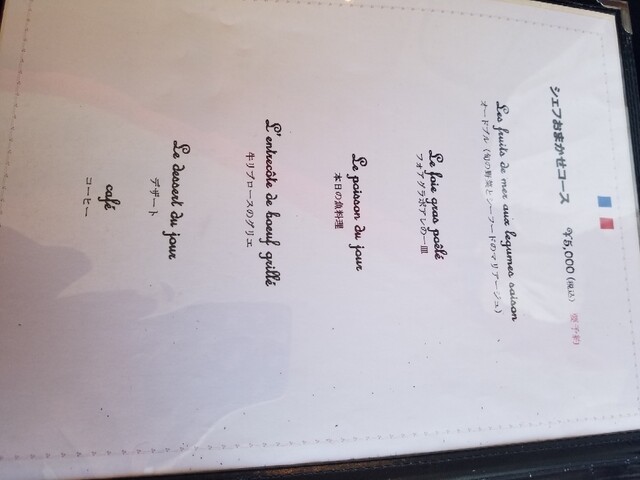 シェフおまかせコース ¥5,000 (税込) 要予約
Les fruits de mer aux legumes saison
オードブル (旬の野菜とシーフードのマリアージュ)
Le foie gras poêlé
フォアグラポアレの一皿
Le poisson du jour
本日の魚料理
L'entrecôte de boeuf grillé
牛リブロースのグリエ
Le dessert du jour
デザート
café
コーヒー